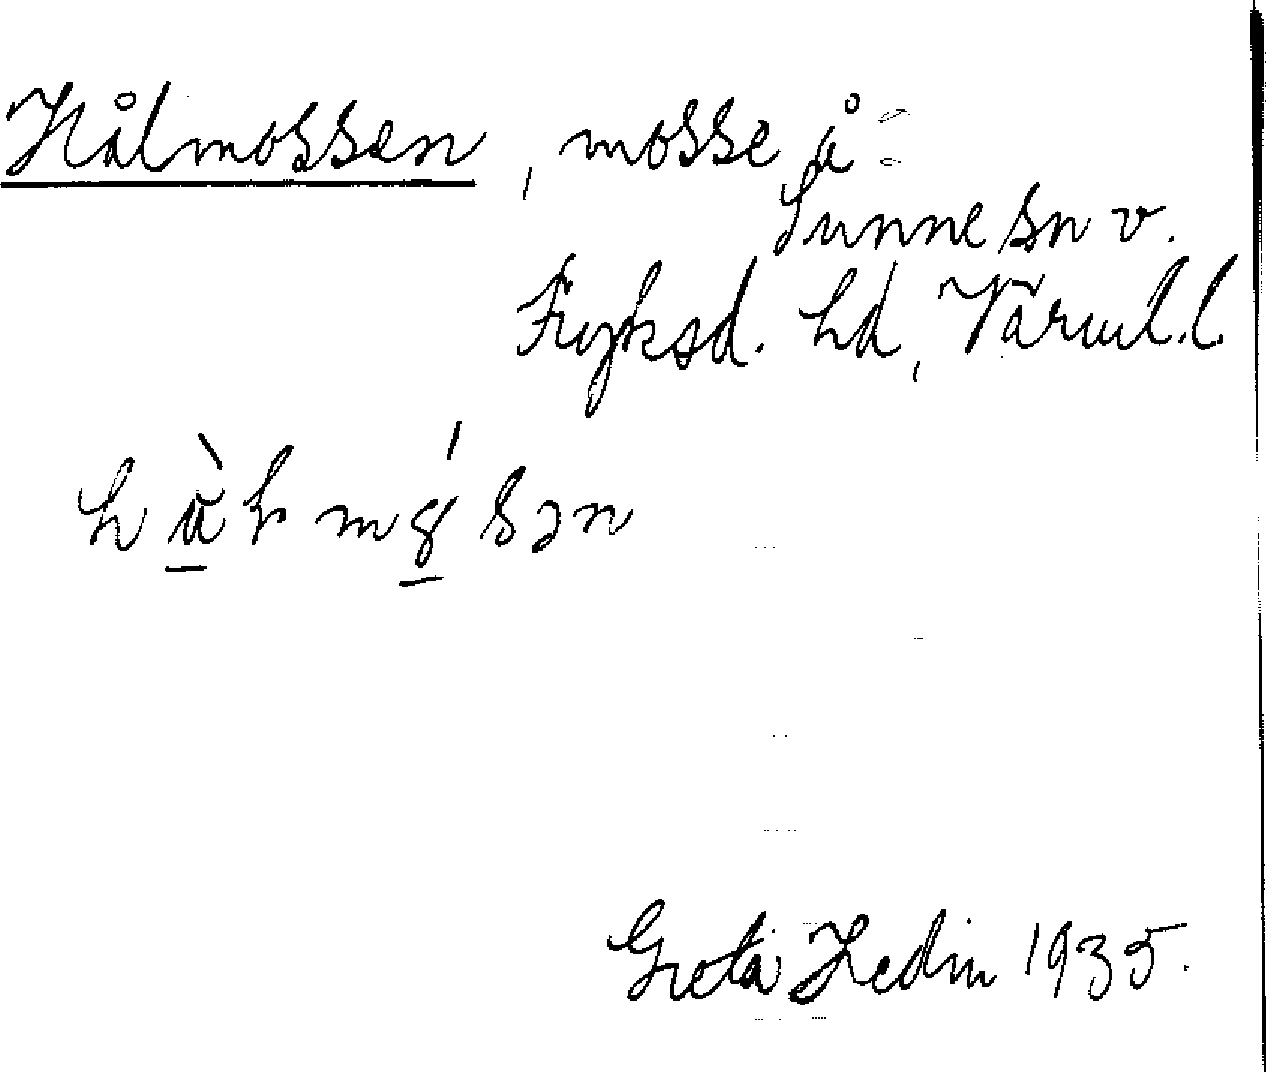 Hålmossen, mosse å
Sunne sn v.
Fryksd. hd, Värml.l.
Greta Hedin 1935.